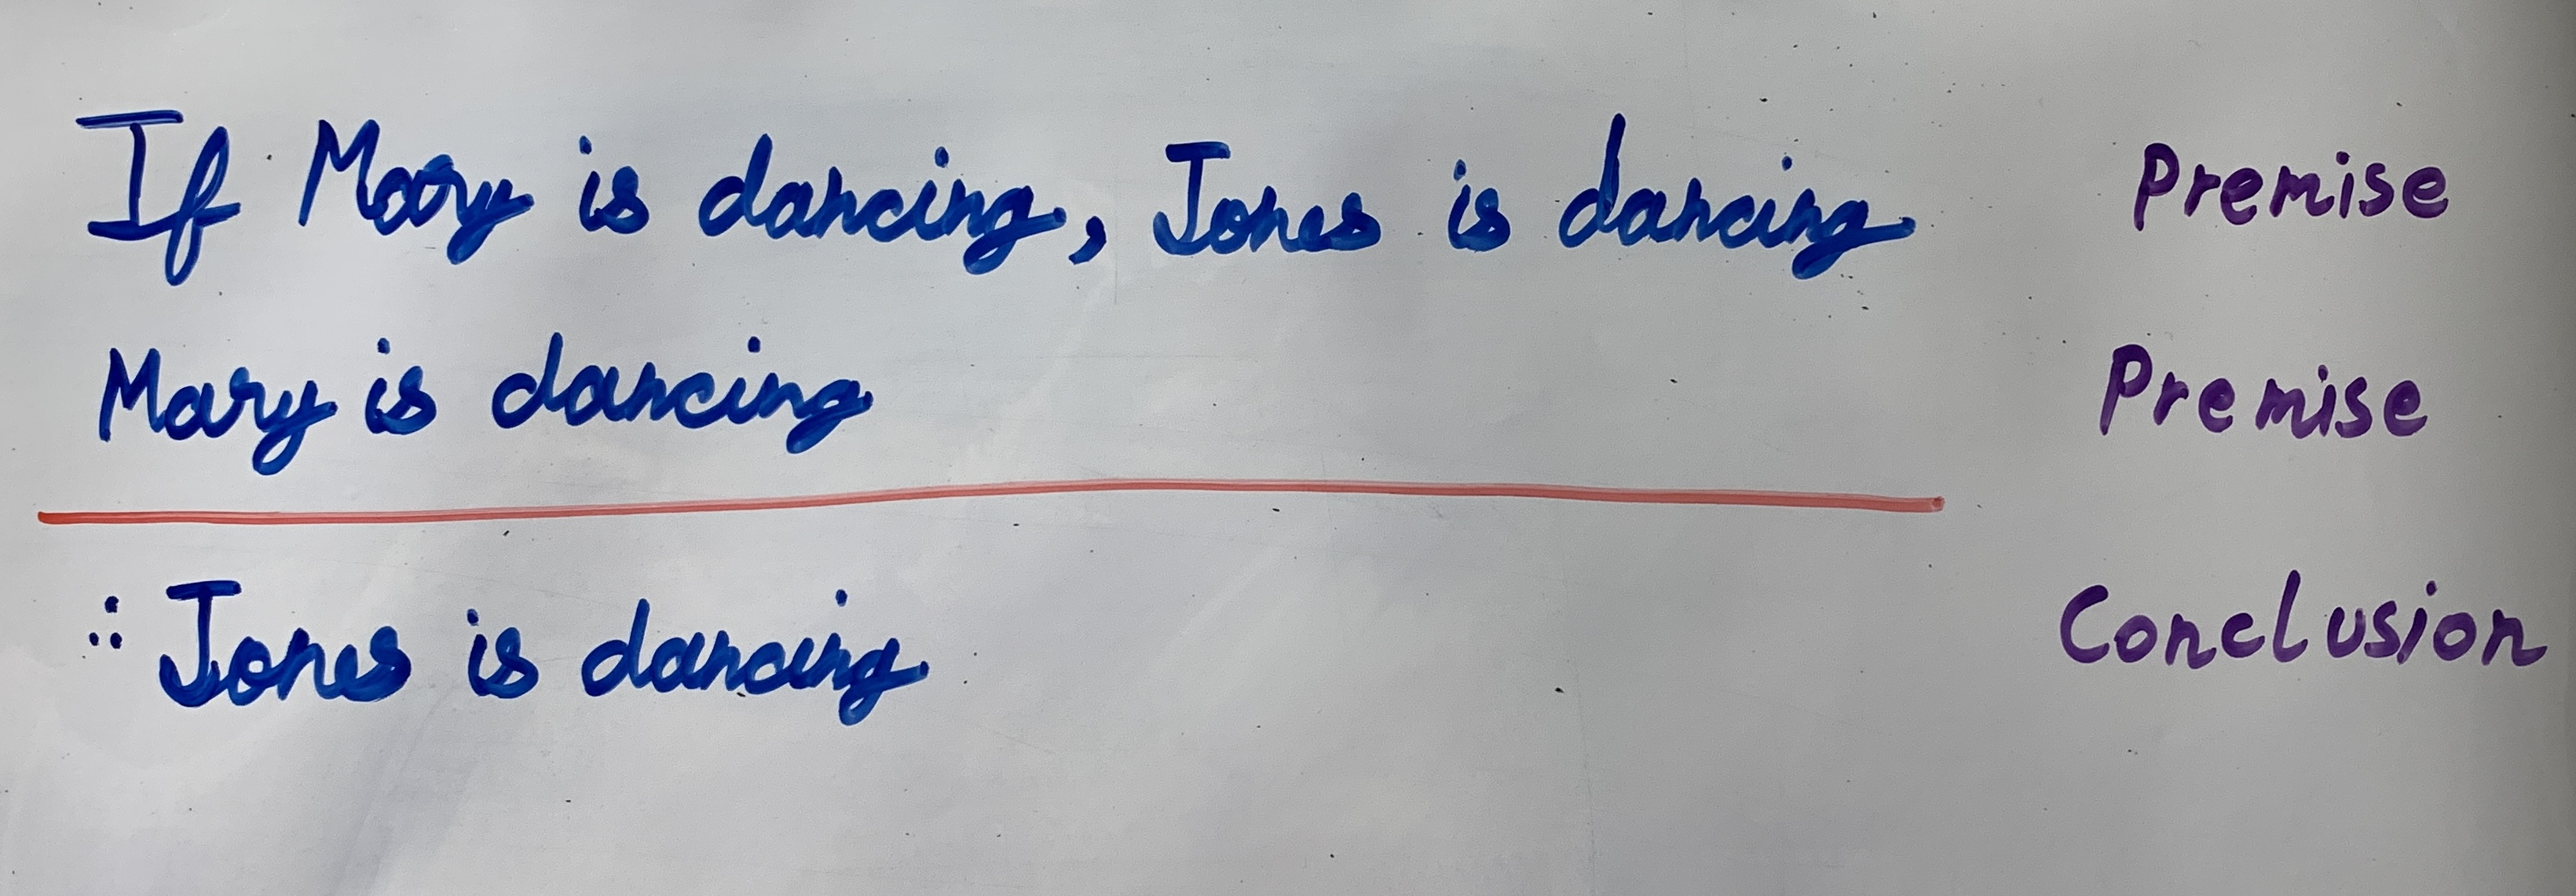 If Mary is dancing, Jones is dancing Premise
Mary is dancing Premise
∴ Jones is dancing Conclusion